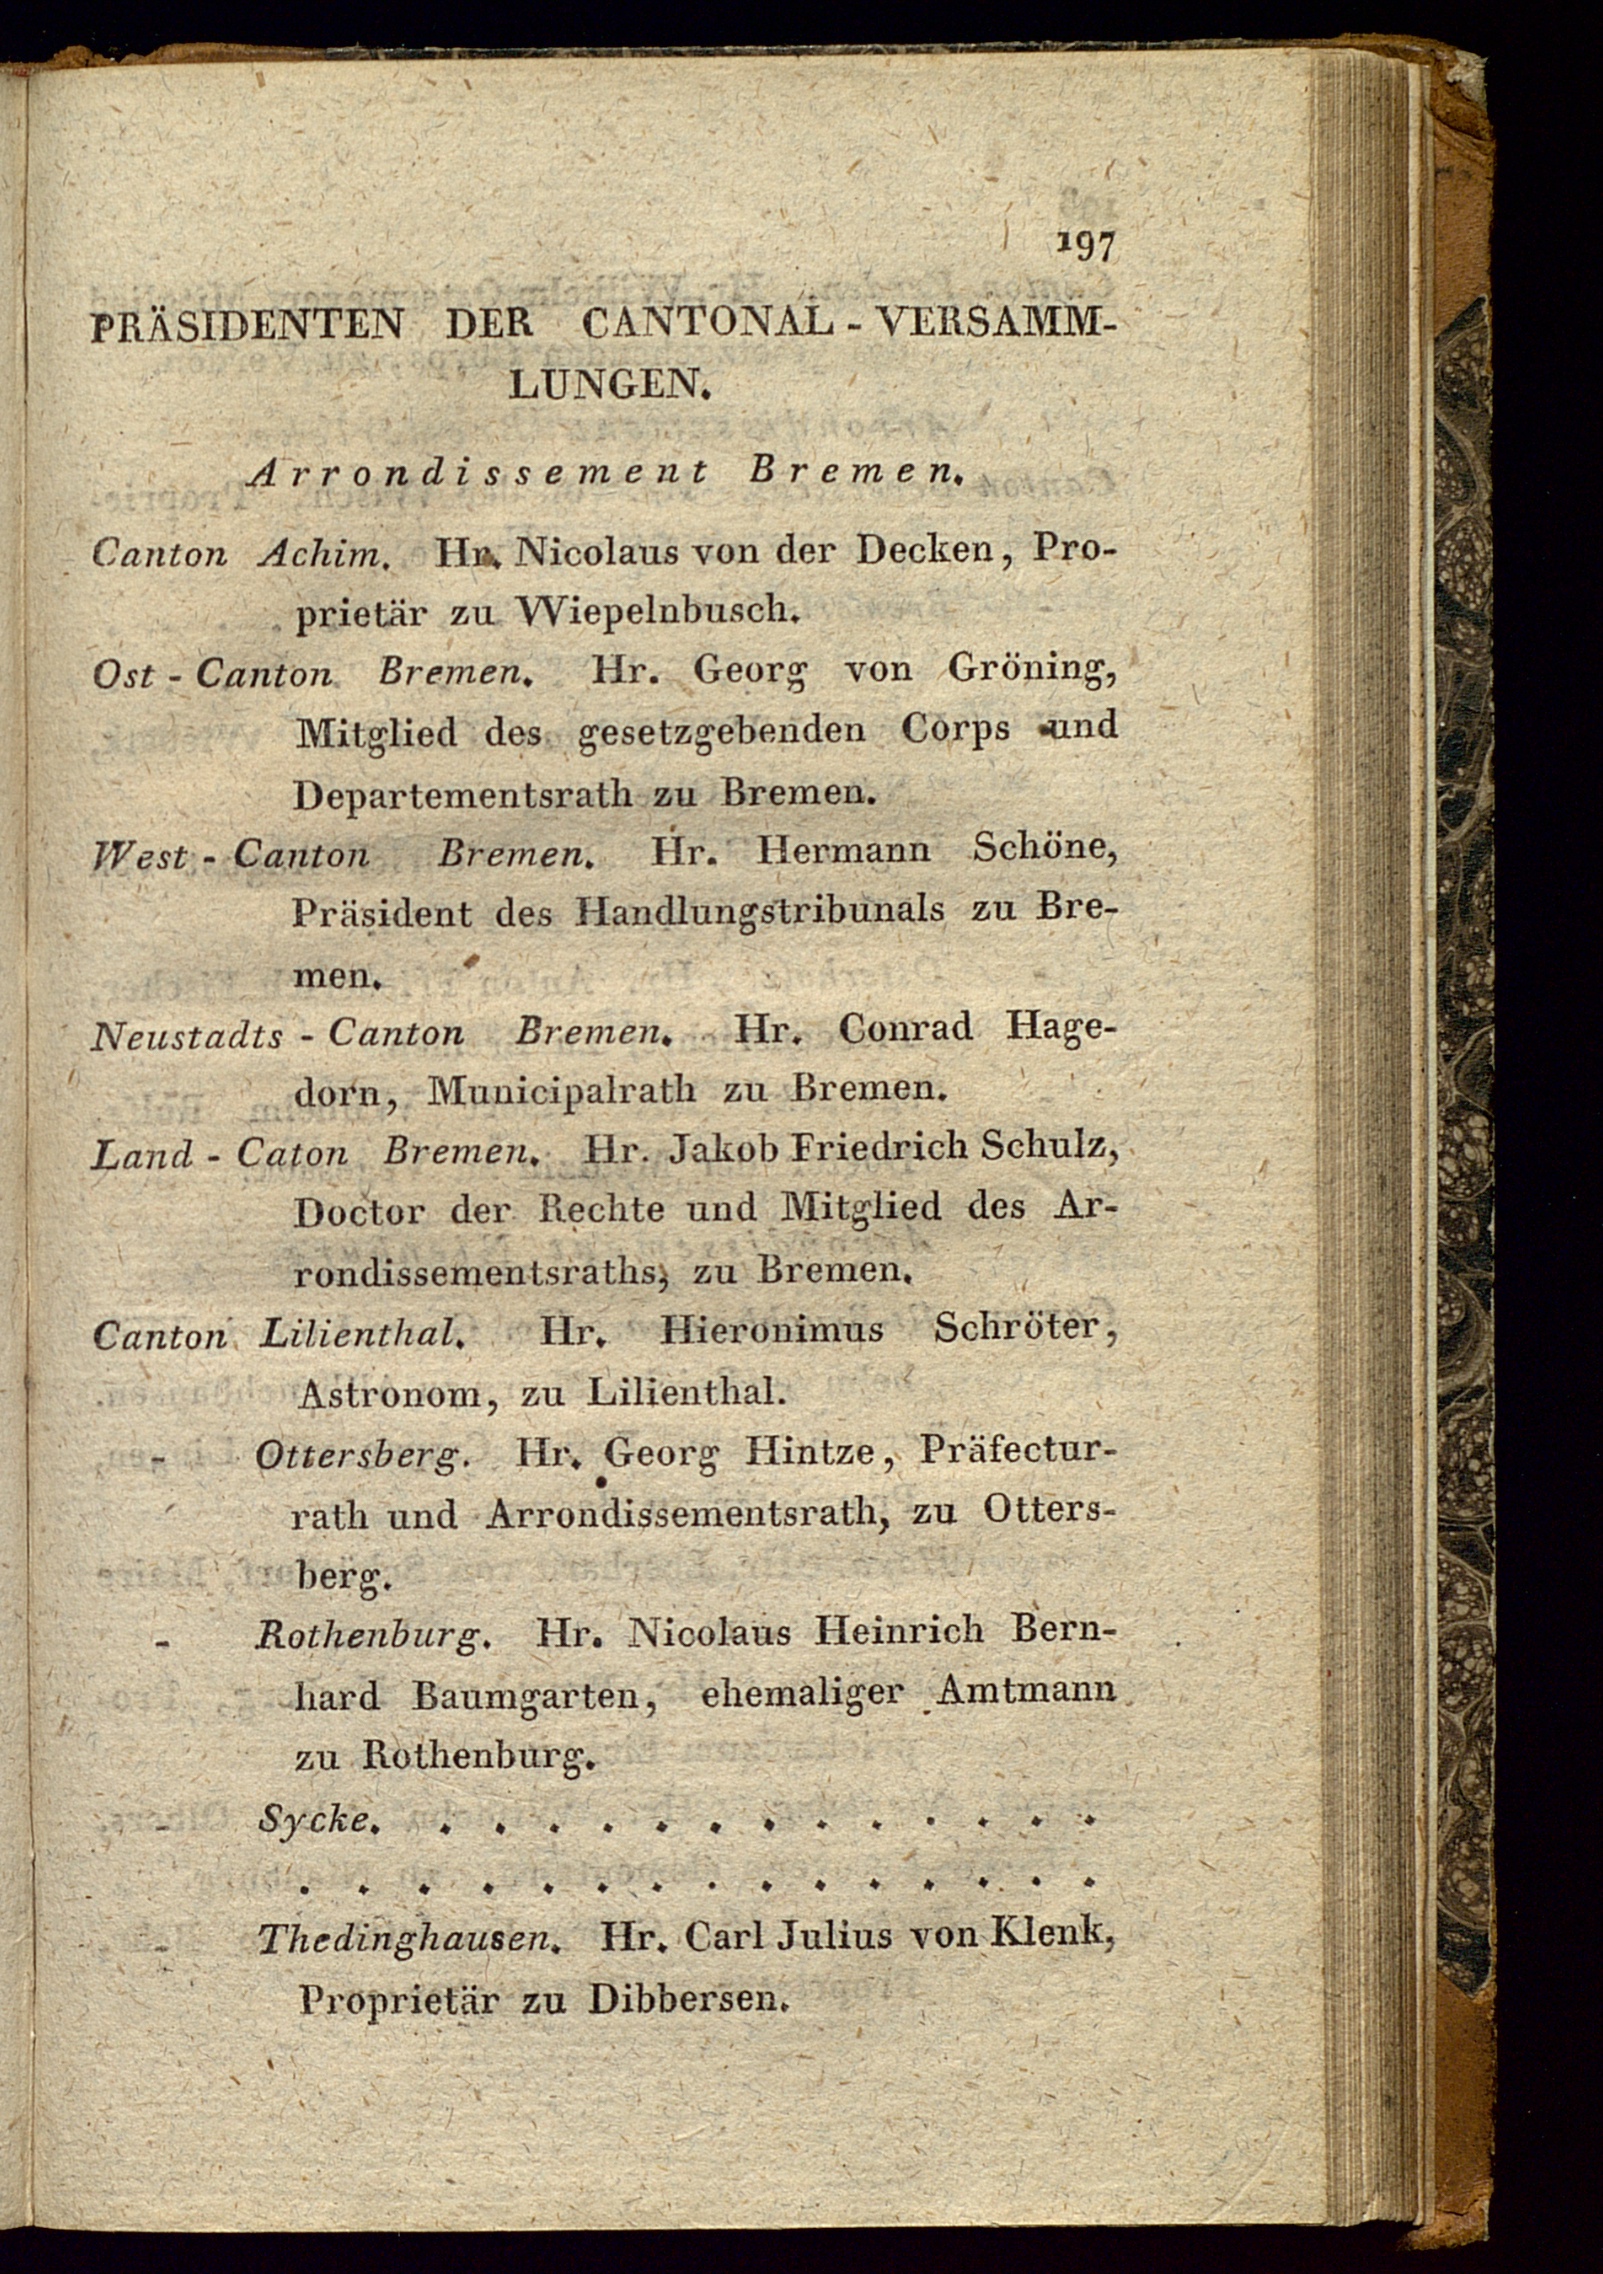 197
PRÄSIDENTEN DER CANTONAL-VERSAMM-
LUNGEN.
Arrondissement Bremen.
Canton Achim. Hr. Nicolaus von der Decken, Pro-
prietär zu Wiepelnbusch.
Ost-Canton Bremen. Hr. Georg von Gröning,
Mitglied des gesetzgebenden Corps und
Departementsrath zu Bremen.
West-Canton Bremen. Hr. Hermann Schöne,
Präsident des Handlungstribunals zu Bre-
men.
Neustadts-Canton Bremen. Hr. Conrad Hage-
dorn, Municipalrath zu Bremen.
Land-Caton Bremen. Hr. Jakob Friedrich Schulz,
Doctor der Rechte und Mitglied des Ar-
rondissementsraths, zu Bremen.
Canton Lilienthal. Hr. Hieronimus Schröter,
Astronom, zu Lilienthal.
- Ottersberg. Hr. Georg Hintze, Präfectur-
rath und Arrondissementsrath, zu Otters-
berg.
- Rothenburg. Hr. Nicolaus Heinrich Bern-
hard Baumgarten, ehemaliger Amtmann
zu Rothenburg.
- Sycke. . . . . . . . . . . . . .
. . . . . . . . . . . . . . .
- Thedinghausen. Hr. Carl Julius von Klenk,
Proprietär zu Dibbersen.